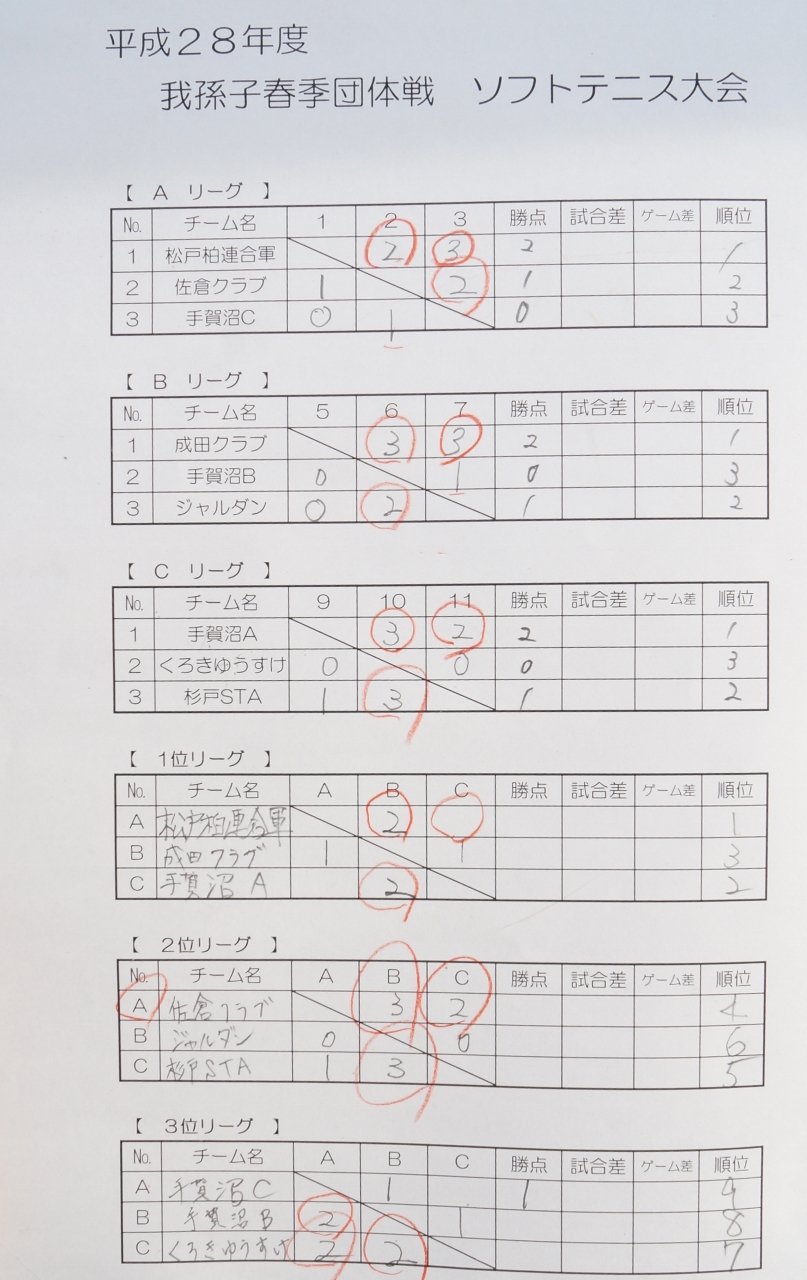 平成２８年度
我孫子春季団体戦　ソフトテニス大会
【　A　リーグ　】
No. チーム名 1 2 3 勝点 試合差 ゲーム差 順位
1 松戸柏連合軍 2 3 2 1
2 佐倉クラブ 1 2 1 2
3 手賀沼C 0 1 0 3
【　B　リーグ　】
No. チーム名 5 6 7 勝点 試合差 ゲーム差 順位
1 成田クラブ 3 3 2 1
2 手賀沼B 0 1 0 3
3 ジャルダン 0 2 1 2
【　C　リーグ　】
No. チーム名 9 10 11 勝点 試合差 ゲーム差 順位
1 手賀沼A 3 2 2 1
2 くろきゆうすけ 0 0 0 3
3 杉戸STA 1 3 1 2
【　1位リーグ　】
No. チーム名 A B C 勝点 試合差 ゲーム差 順位
A 松戸柏連合軍 2 1
B 成田クラブ 1 1 3
C 手賀沼 A 2 2
【　2位リーグ　】
No. チーム名 A B C 勝点 試合差 ゲーム差 順位
A 佐倉クラブ 3 2 4
B ジャルダン 0 0 6
C 杉戸STA 1 3 5
【　3位リーグ　】
No. チーム名 A B C 勝点 試合差 ゲーム差 順位
A 手賀沼C 1 1
B 手賀沼B 2 1 8
C くろきゆうすけ 2 2 7